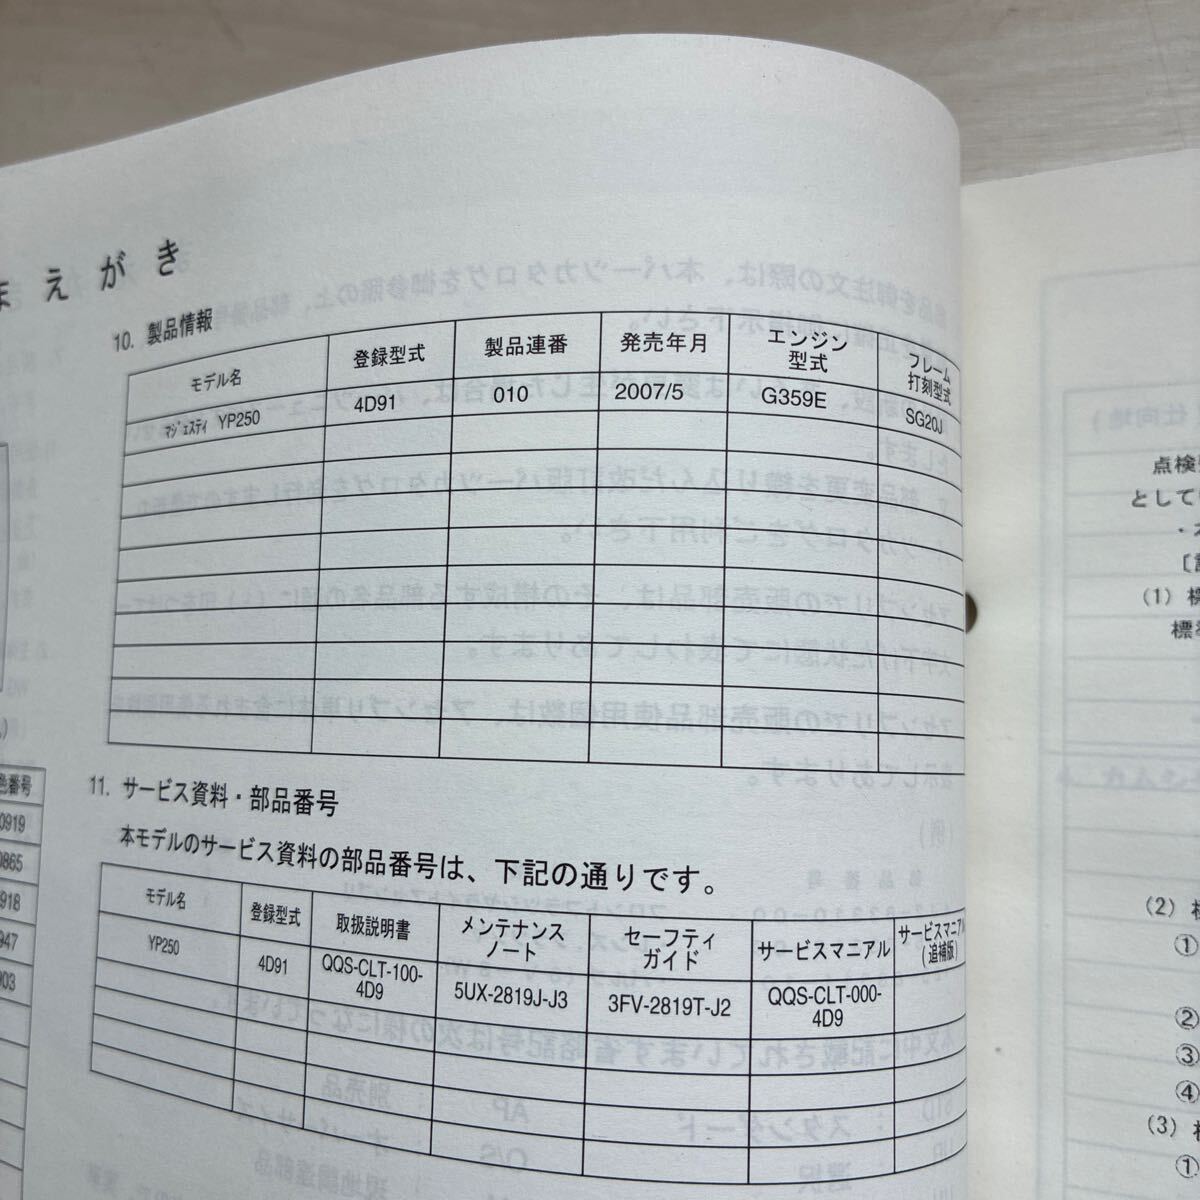 まえがき
10. 製品情報
モデル名 登録型式 製品連番 発売年月 エンジン型式 フレーム打刻型式
マジェスティ YP250 4D91 010 2007/5 G359E SG20J
11. サービス資料・部品番号
本モデルのサービス資料の部品番号は、下記の通りです。
モデル名 登録型式 取扱説明書 メンテナンスノート セーフティガイド サービスマニアル サービスマニアル(追補版)
YP250 4D91 QQS-CLT-100-4D9 5UX-2819J-J3 3FV-2819T-J2 QQS-CLT-000-4D9
色番号
0919
0865
918
947
903
仕向地)
点検
として
(1)
標準
(2)
①
②
③
④
(3)
①